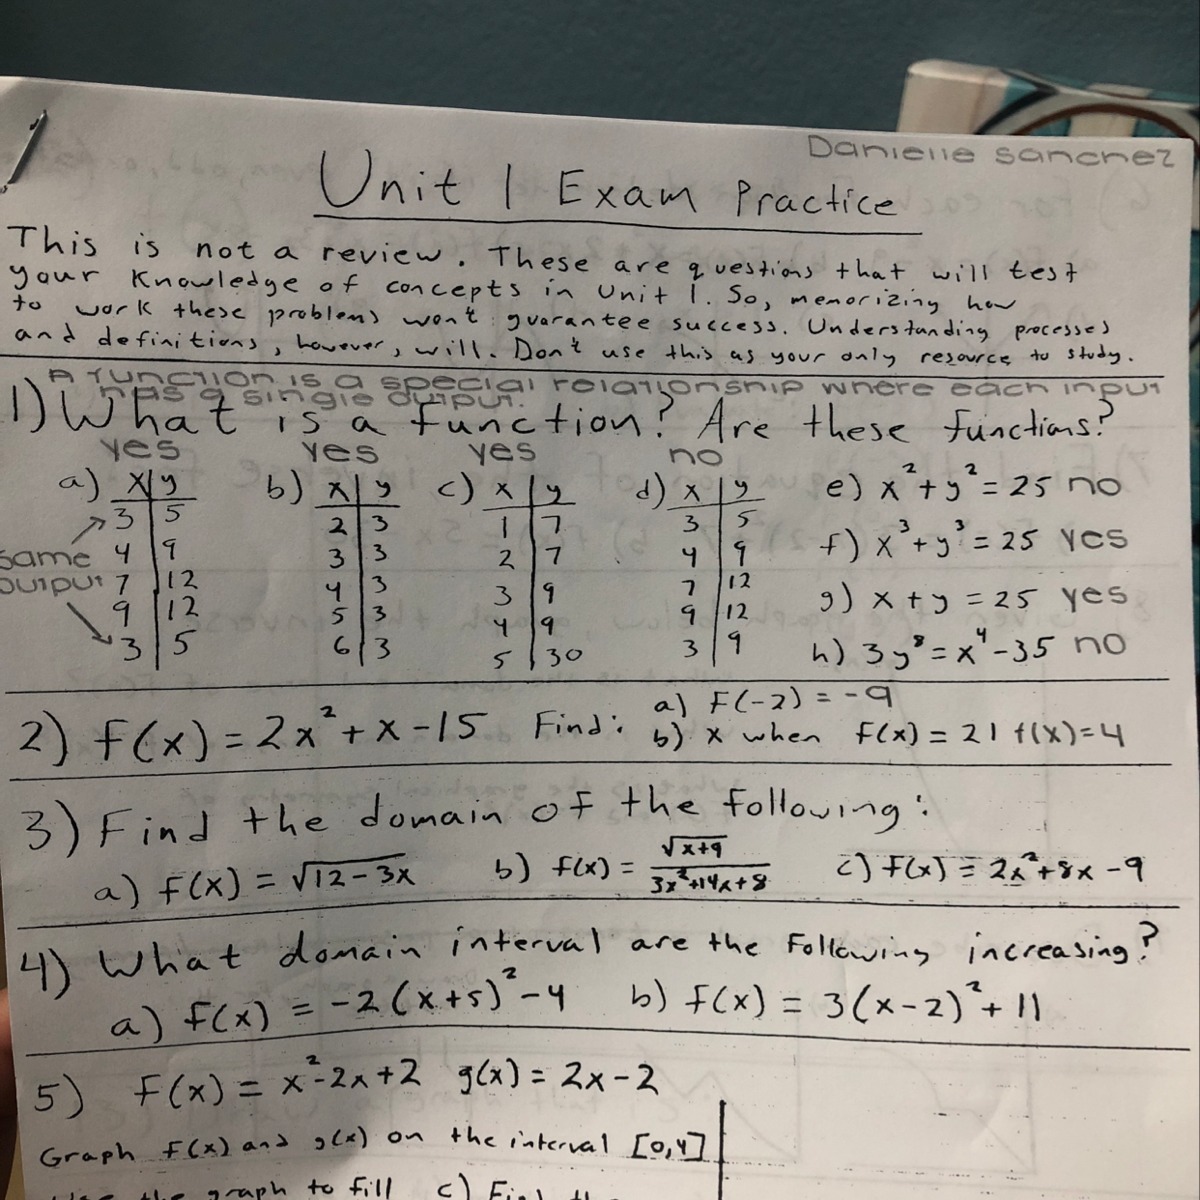 Danielle Sanchez
Unit 1 Exam Practice
This is not a review. These are questions that will test
your Knowledge of concepts in Unit 1. So, memorizing how
to work these problems won't guarantee success. Understanding processes
and definitions, however, will. Don't use this as your only resource to study.
A function is a special relationship where each input
has a single output.
1) What is a function? Are these functions?
yes yes yes no
a) x y b) x y c) x y d) x y e) x²+y²=25 no
3 5 2 3 1 7 3 5
4 9 3 3 2 7 4 9 f) x³+y³=25 yes
same
output
7 12 4 3 3 9 7 12 g) x+y=25 yes
9 12 5 3 4 9 9 12
3 5 6 3 5 30 3 9 h) 3y⁸=x⁴-35 no
2) f(x)=2x²+x-15 Find: a) f(-2) = -9
b) x when f(x)=21 f(x)=4
3) Find the domain of the following:
a) f(x)=√12-3x b) f(x)=√x+9/3x²+14x+8 c) f(x)=2x²+8x-9
4) What domain interval are the following increasing?
a) f(x) = -2(x+5)²-4 b) f(x) = 3(x-2)²+11
5) f(x)=x²-2x+2 g(x)=2x-2
Graph f(x) and g(x) on the interval [0,4]
Use the graph to fill c) Find the